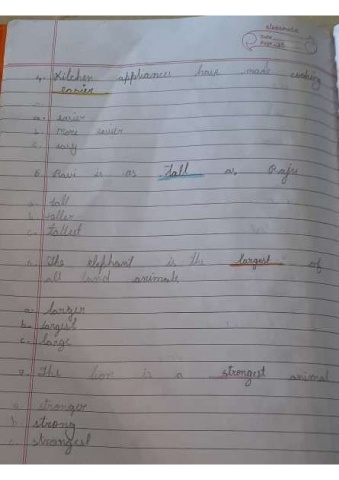 classmate
Date
Page
4. Kitchen appliances have made cooking
easier
a. easier
b. more easier
c. easy
Ravi is as tall as Raju
a. tall
b. taller
c. tallest
The elephant is the largest of
all land animals
a. larger
b. largest
c. large
The lion is a strongest animal
a. stronger
b. strong
c. strongest